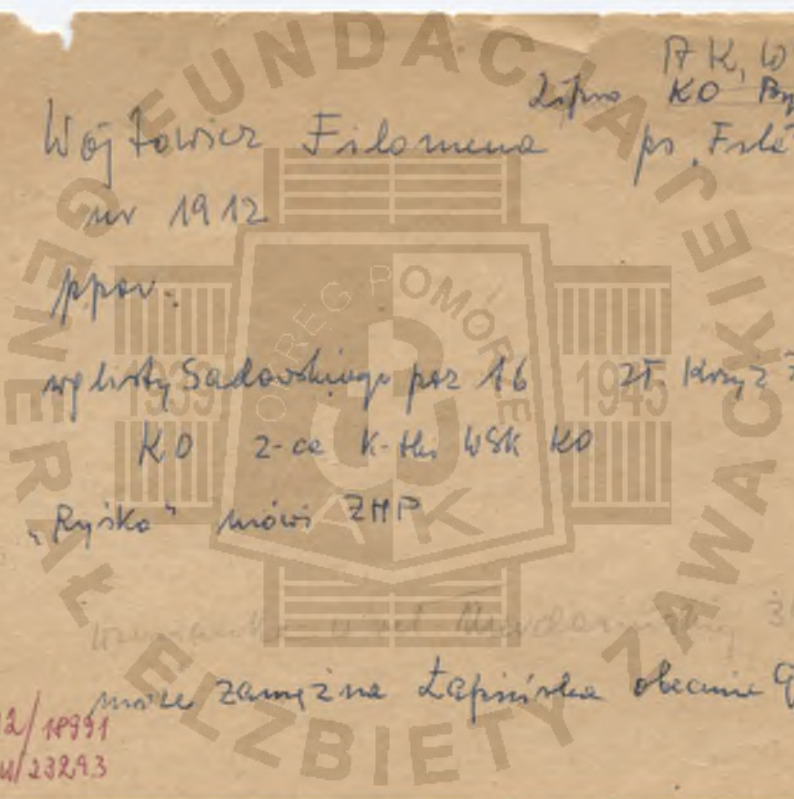 AK, W
Lipno KO By
Wójtowicz Filomena ps. "File
ur 1912
ppor.
wg listy Sadowskiego poz 16 zł. Krzyż Z
KO z-ca K-tki WSK KO
"Ryśka" mówi ZHP
może zamężna Łapińska obecnie G
2/18991
M/23293
FUNDACJA GENERAŁ ELŻBIETY ZAWACKIEJ
OKRĘG POMORZE
1939 1945
AK